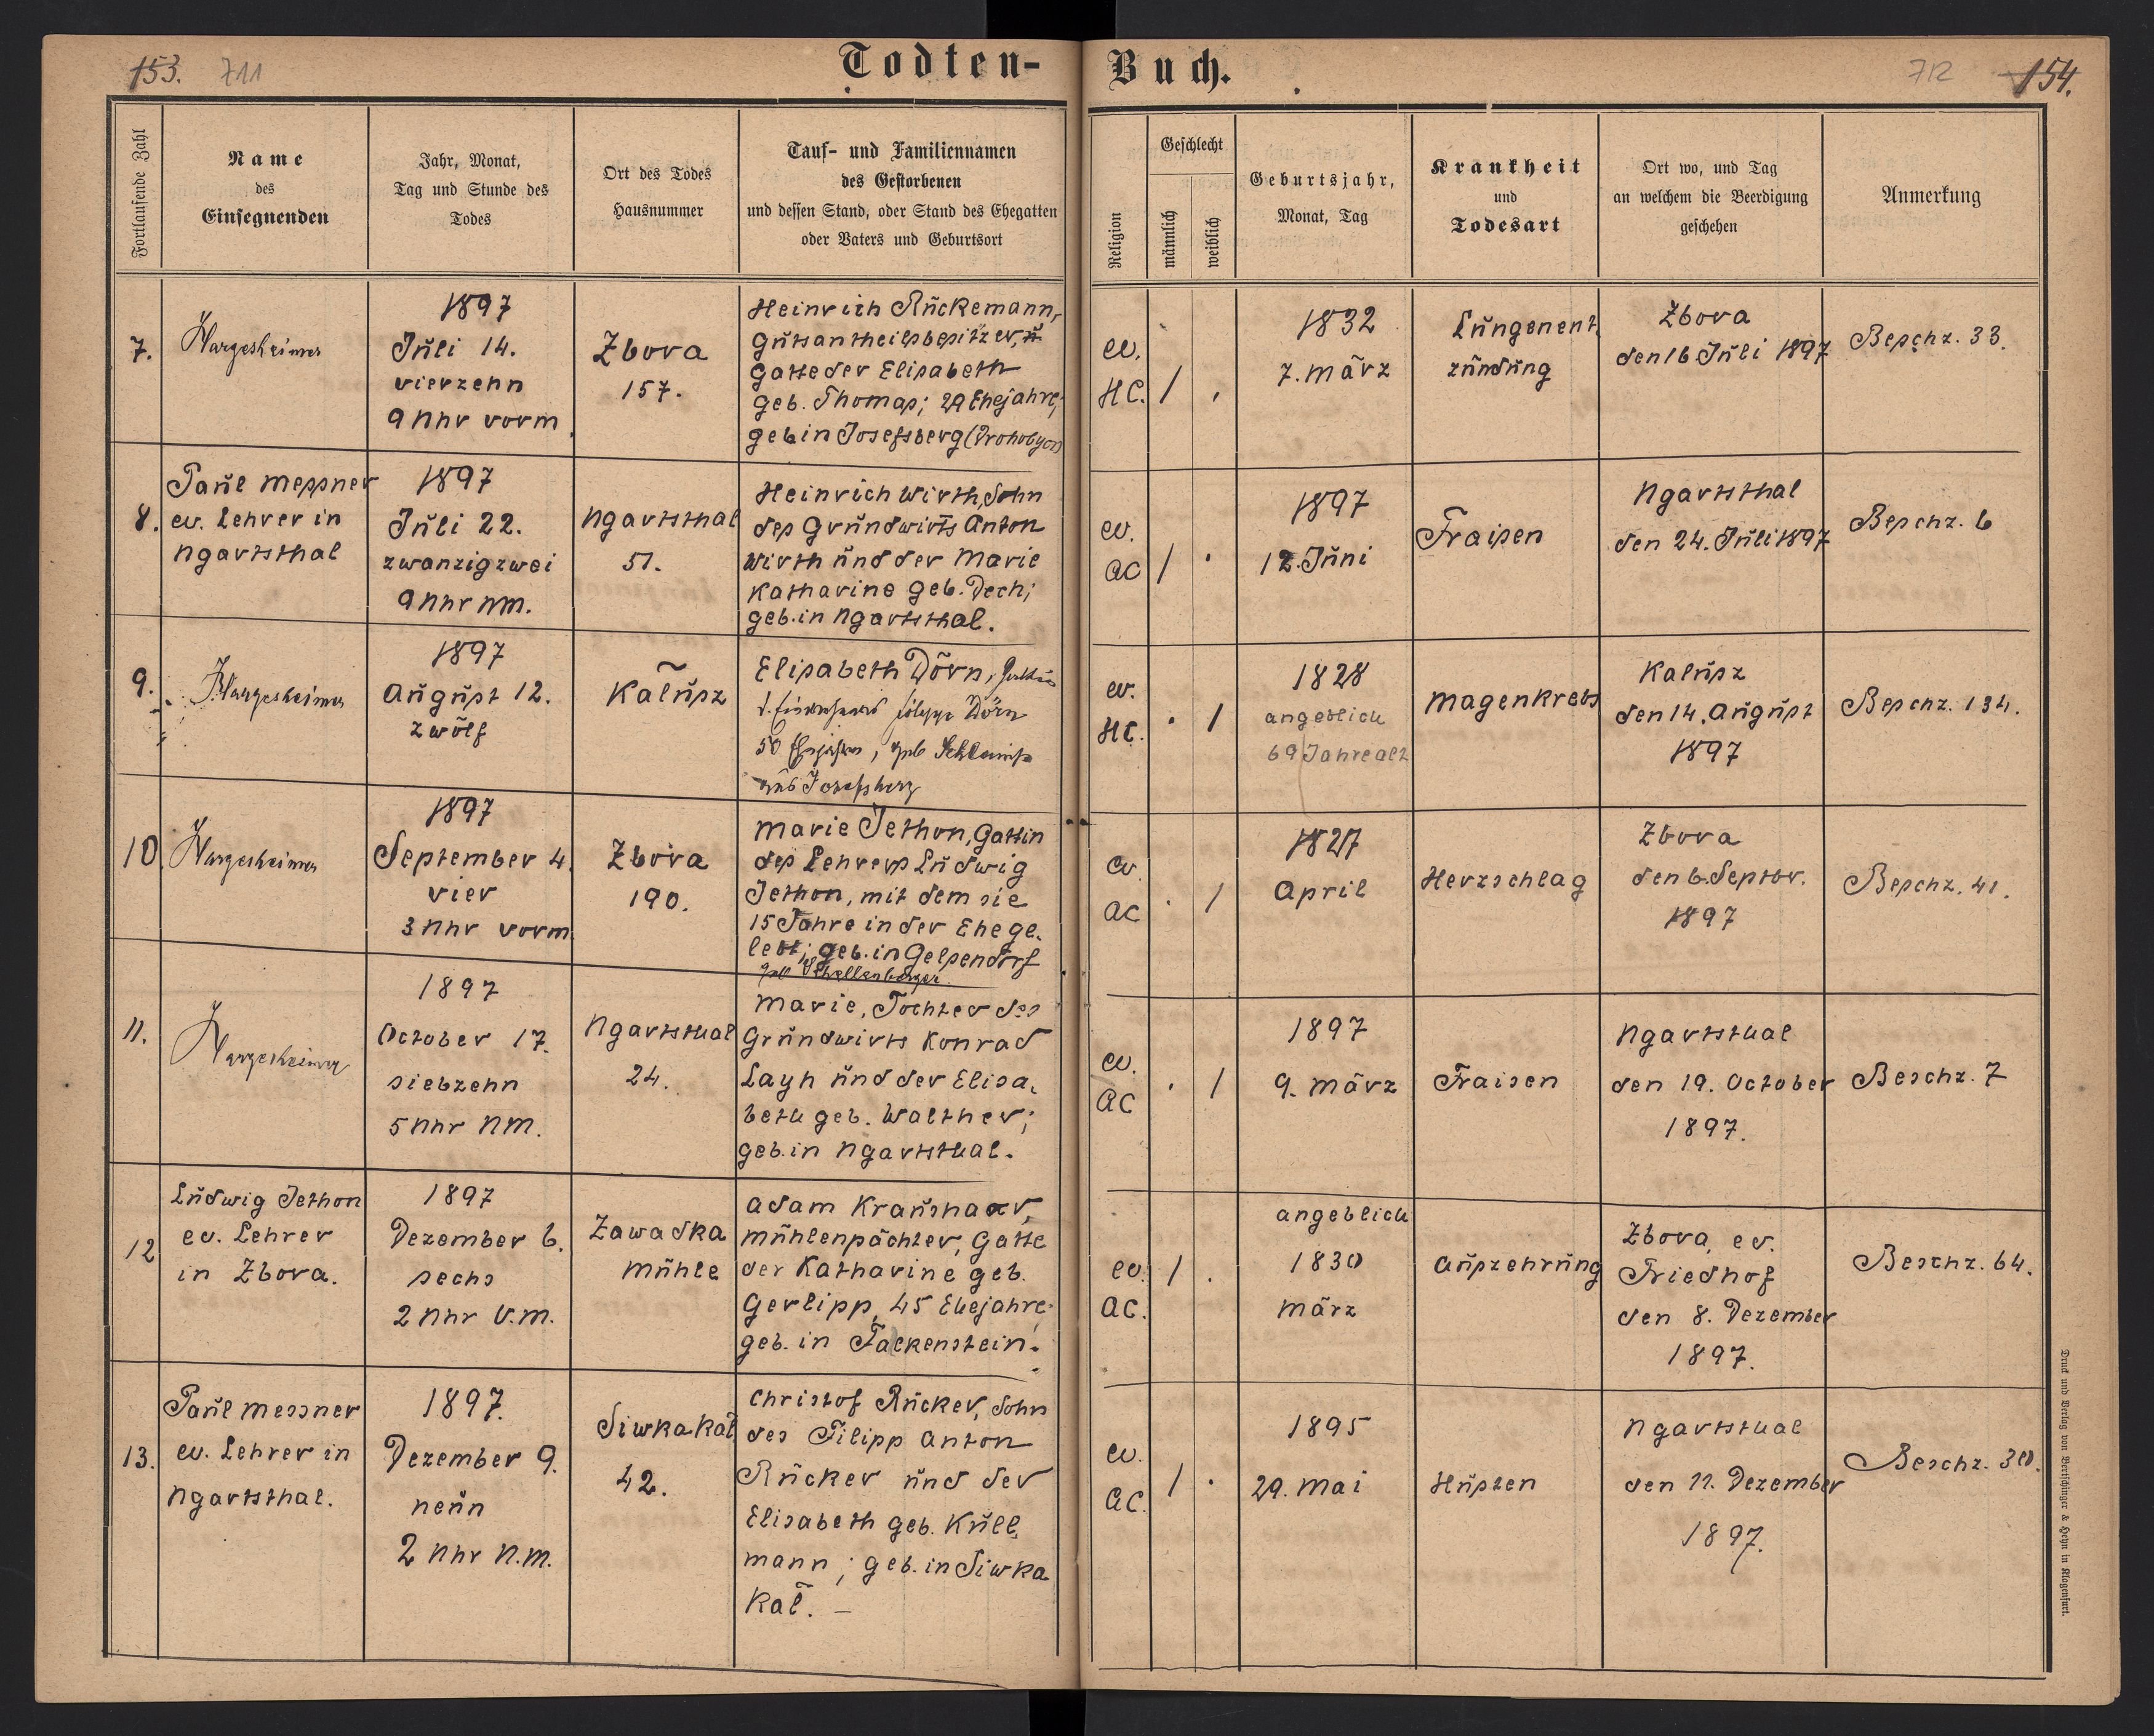 153. 711
Todten-
Buch.
712 154.
Fortlaufende Zahl
Name
des
Einsegnenden
Jahr, Monat,
Tag und Stunde des
Todes
Ort des Todes
Hausnummer
Tauf- und Familiennamen
des Gestorbenen
und dessen Stand, oder Stand des Ehegatten
oder Vaters und Geburtsort
Religion
Geschlecht
männlich
weiblich
Geburtsjahr,
Monat, Tag
Krankheit
und
Todesart
Ort wo, und Tag
an welchem die Beerdigung
geschehen
Anmerkung
7.
Hargesheimer
1897
Juli 14.
vierzehn
9 Uhr vorm
Zbora
157.
Heinrich Rückemann,
Gutsantheilsbesitzer,
Gatte der Elisabeth
geb. Thomas; 29 Ehejahre;
geb in Josefsberg (Drohobycz)
ev.
HC.
/
.
1832
7. März
Lungenent
zündung
Zbora
den 16 Juli 1897
Beschz. 33.
8.
Paul Messner
ev. Lehrer in
Ugartsthal
1897
Juli 22.
zwanzigzwei
9 Uhr NM.
Ugartsthal
51.
Heinrich Wirth, Sohn
des Grundwirts Anton
Wirth und der Marie
Katharine geb. Dech;
geb. in Ugartsthal.
ev.
AC
/
.
1897
12. Juni
Fraisen
Ugartsthal
den 24. Juli 1897
Beschz. 6
9.
Hargesheimer
1897
August 12.
zwölf
Kałusz
Elisabeth Dörn, Gattin
Dörn
50 Ehejahre, geb
aus Josefsberg
ev.
HC.
.
/
1828
angeblich
69 Jahre alt
Magenkrebs
Kalusz
den 14. August
1897
Beschz. 134.
10
Hargesheimer
1897
September 4.
vier
3 Uhr vorm
Zbora
190.
Marie Jethon, Gattin
des Lehrers Ludwig
Jethon, mit dem sie
15 Jahre in der Ehe ge-
lebt; geb. in Gelsendorf
geb Schellenberger
ev.
AC
.
/
1827
April
Herzschlag
Zbora
den 6. Septbr.
1897
Beschz. 41.
11.
Hargesheimer
1897
October 17.
siebzehn
5 Uhr NM.
Ugartsthal
24.
Marie, Tochter des
Grundwirts Konrad
Layh und der Elisa-
beth geb. Walther;
geb. in Ugartsthal.
ev.
AC
.
/
1897
9. März
Fraisen
Ugartsthal
den 19. October
1897.
Beschz. 7
12
Ludwig Jethon
ev. Lehrer
in Zbora.
1897
Dezember 6.
sechs
2 Uhr V.M.
Zawadka
Mühle
Adam Kraushaar,
Mühlenpächter, Gatte
der Katharine geb.
Gerlipp, 45 Ehejahre
geb. in Falkenstein.
ev.
AC.
/
.
angeblich
1830
März
Auszehrung
Zbora, ev.
Friedhof
den 8. Dezember
1897.
Beschz. 64.
13.
Paul Messner
ev. Lehrer in
Ugartsthal.
1897.
Dezember 9.
neun
2 Uhr N.M.
Siwka kał
42.
Christof Rücker, Sohn
des Filipp Anton
Rücker und der
Elisabeth geb. Kull-
mann; geb. in Siwka
kał. —
ev.
AC.
/
.
1895
29. Mai
Husten
Ugartsthal
den 11. Dezember
1897.
Beschz. 30.
Druck und Verlag von Bertschinger & Heyn in Klagenfurt.